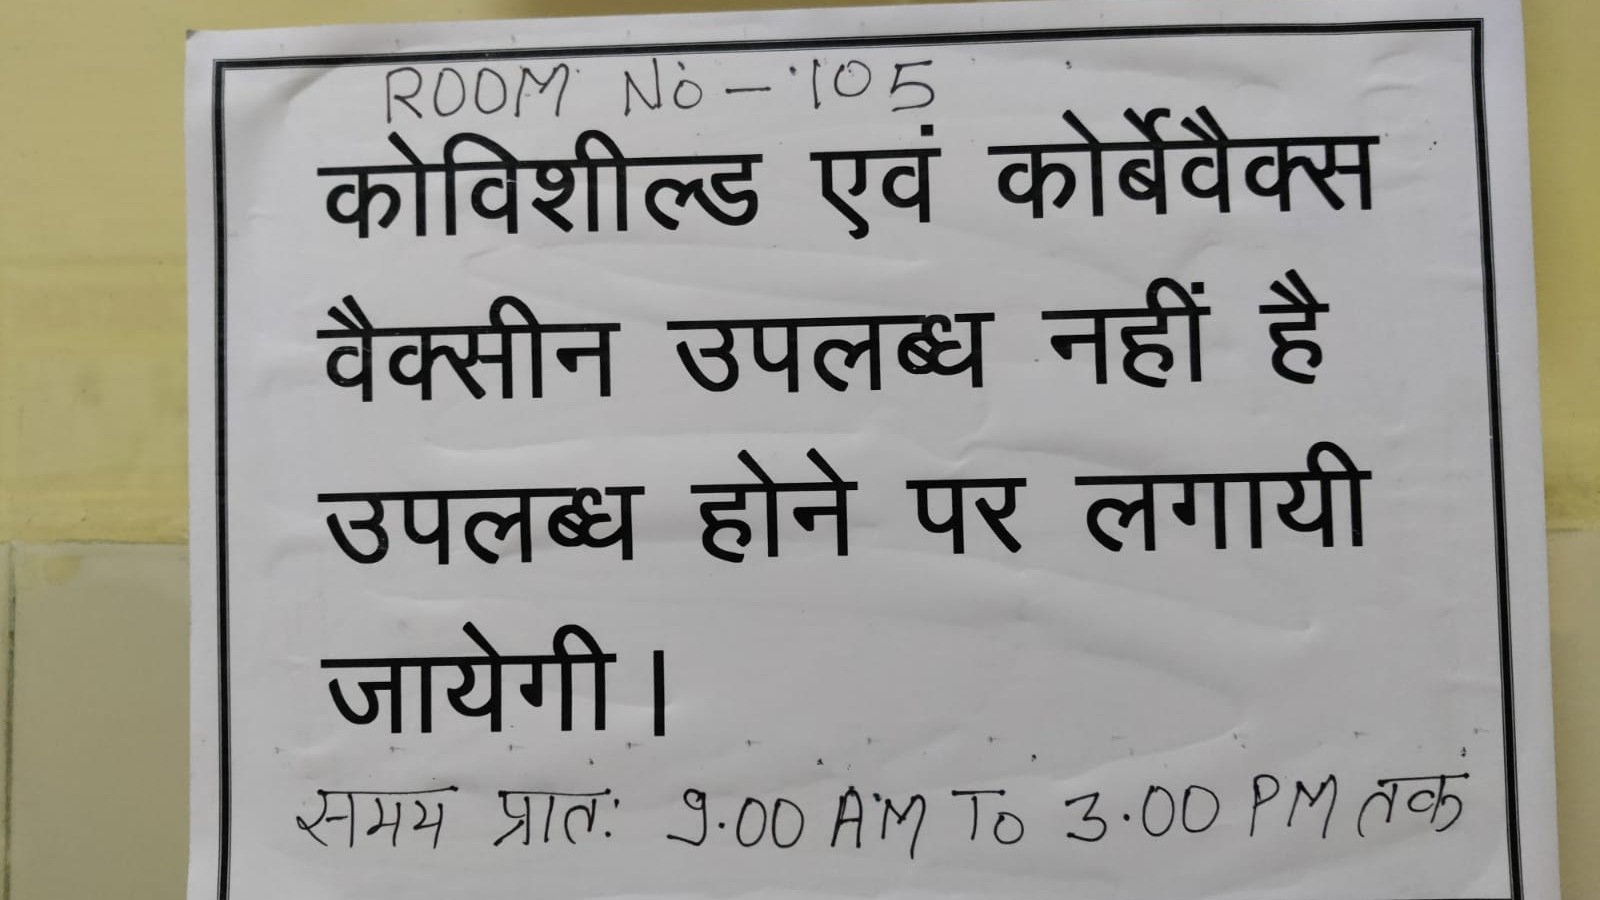 ROOM No - 105
कोविशील्ड एवं कोर्बेवैक्स
वैक्सीन उपलब्ध नहीं है
उपलब्ध होने पर लगायी
जायेगी।
समय प्रातः 9.00 AM To 3.00 PM तक